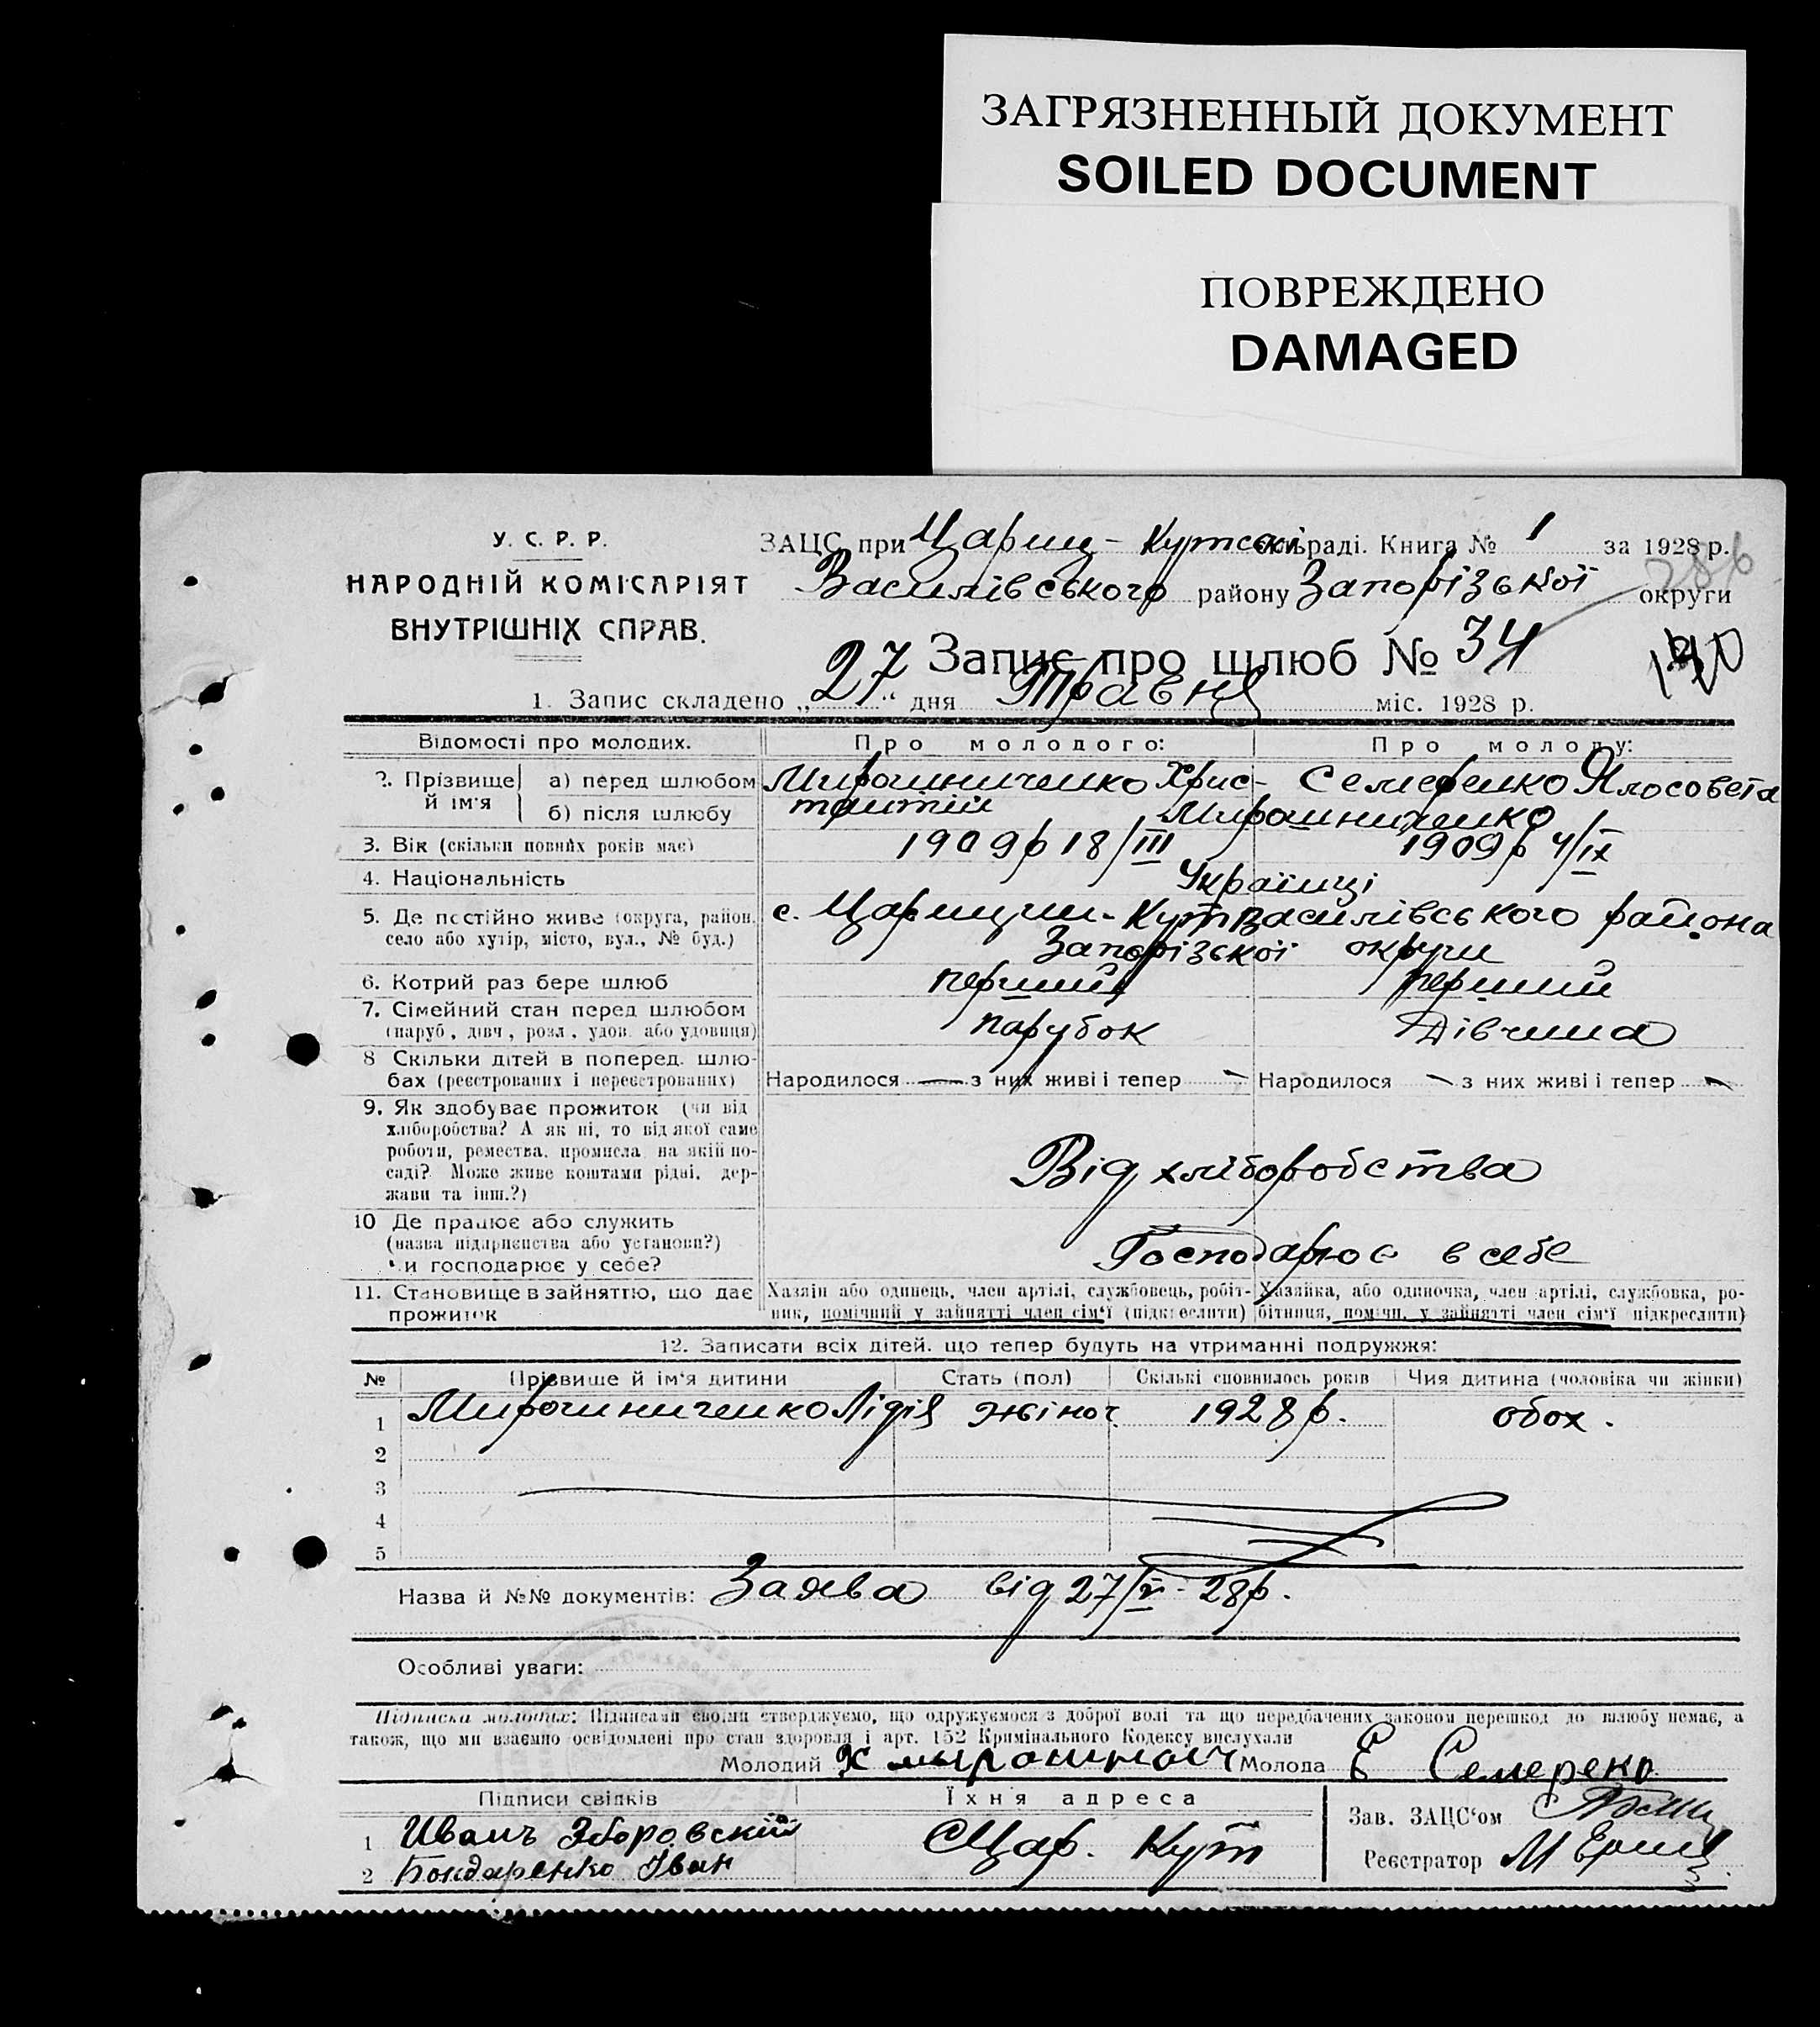 ЗАГРЯЗНЕННЫЙ ДОКУМЕНТ
SOILED DOCUMENT
ПОВРЕЖДЕНО
DAMAGED
У. С. Р. Р.
НАРОДНІЙ КОМІСАРІЯТ
ВНУТРІШНІХ СПРАВ.
ЗАЦС при Цариц-Кутськ сільраді. Книга № 1 за 1928 р.
Василівського району Запорізької округи
Запис про шлюб № 34
1. Запис складено „27“ дня Травня міс. 1928 р.
Відомості про молодих. Про молодого: Про молоду:
2. Прізвище й ім'я а) перед шлюбом Мирошниченко Хрис- Семеренко
б) після шлюбу Мирошниченко
3. Вік (скільки повних років має) 1909р 18/III 1909р 4/IX
4. Національність Українці
5. Де постійно живе (округа, район, с. Царицин-Кут Василівського района
село або хутір, місто, вул., № буд.) Запорізької округи
6. Котрий раз бере шлюб перший перший
7. Сімейний стан перед шлюбом
(паруб., дівч., розл., удов. або удовиця) парубок Дівчина
8 Скільки дітей в поперед. шлю-
бах (реєстрованих і нереєстрованих) Народилося — з них живі і тепер - Народилося - з них живі і тепер -
9. Як здобуває прожиток (чи від
хліборобства? А як ні, то від якої саме
роботи, ремества, промисла, на якій по-
саді? Може живе коштами рідні, дер-
жави та інш.?)
Від хліборобства
10 Де працює або служить
(назва підприємства або установи?)
чи господарює у себе? Господарює в себе
11. Становище в зайняттю, що дає Хазяїн або одинець, член артілі, службовець, робіт- Хазяйка, або одиночка, член артілі, службовка, ро-
прожиток ник, помічний у зайнятті член сім'ї (підкреслити) бітниця, поміч. у зайнятті член сім'ї підкреслити)
12. Записати всіх дітей, що тепер будуть на утриманні подружжя:
№ Прізвище й ім'я дитини Стать (пол) Скількі сповнилось років Чия дитина (чоловіка чи жінки)
1 Мирошниченко Лідія жіноч 1928р. обох.
2
3
4
5
Назва й №№ документів: Заява від 27/V-28р.
Особливі уваги:
Підписка молодих: Підписами своїми стверджуємо, що одружуємося з доброї волі та що передбачених законом перешкод до шлюбу немає, а
також, що ми взаємно освідомлені про стан здоровля і арт. 152 Кримінального Кодексу вислухали
Молодий Х мырошнич Молода Е Семерено
Підписи свідків Їхня адреса
1 Иванъ Зборовский Цар. Кут
2 Бондаренко Іван
Зав. ЗАЦС'ом
Реєстратор М